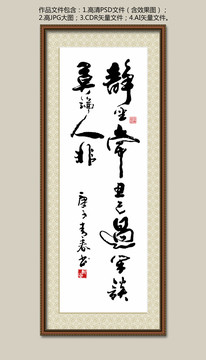 作品文件包含：1.高清PSD文件（含效果图）；
2.高JPG大图；3.CDR矢量文件；4.AI矢量文件。
静坐常思己过闲谈
莫論人非